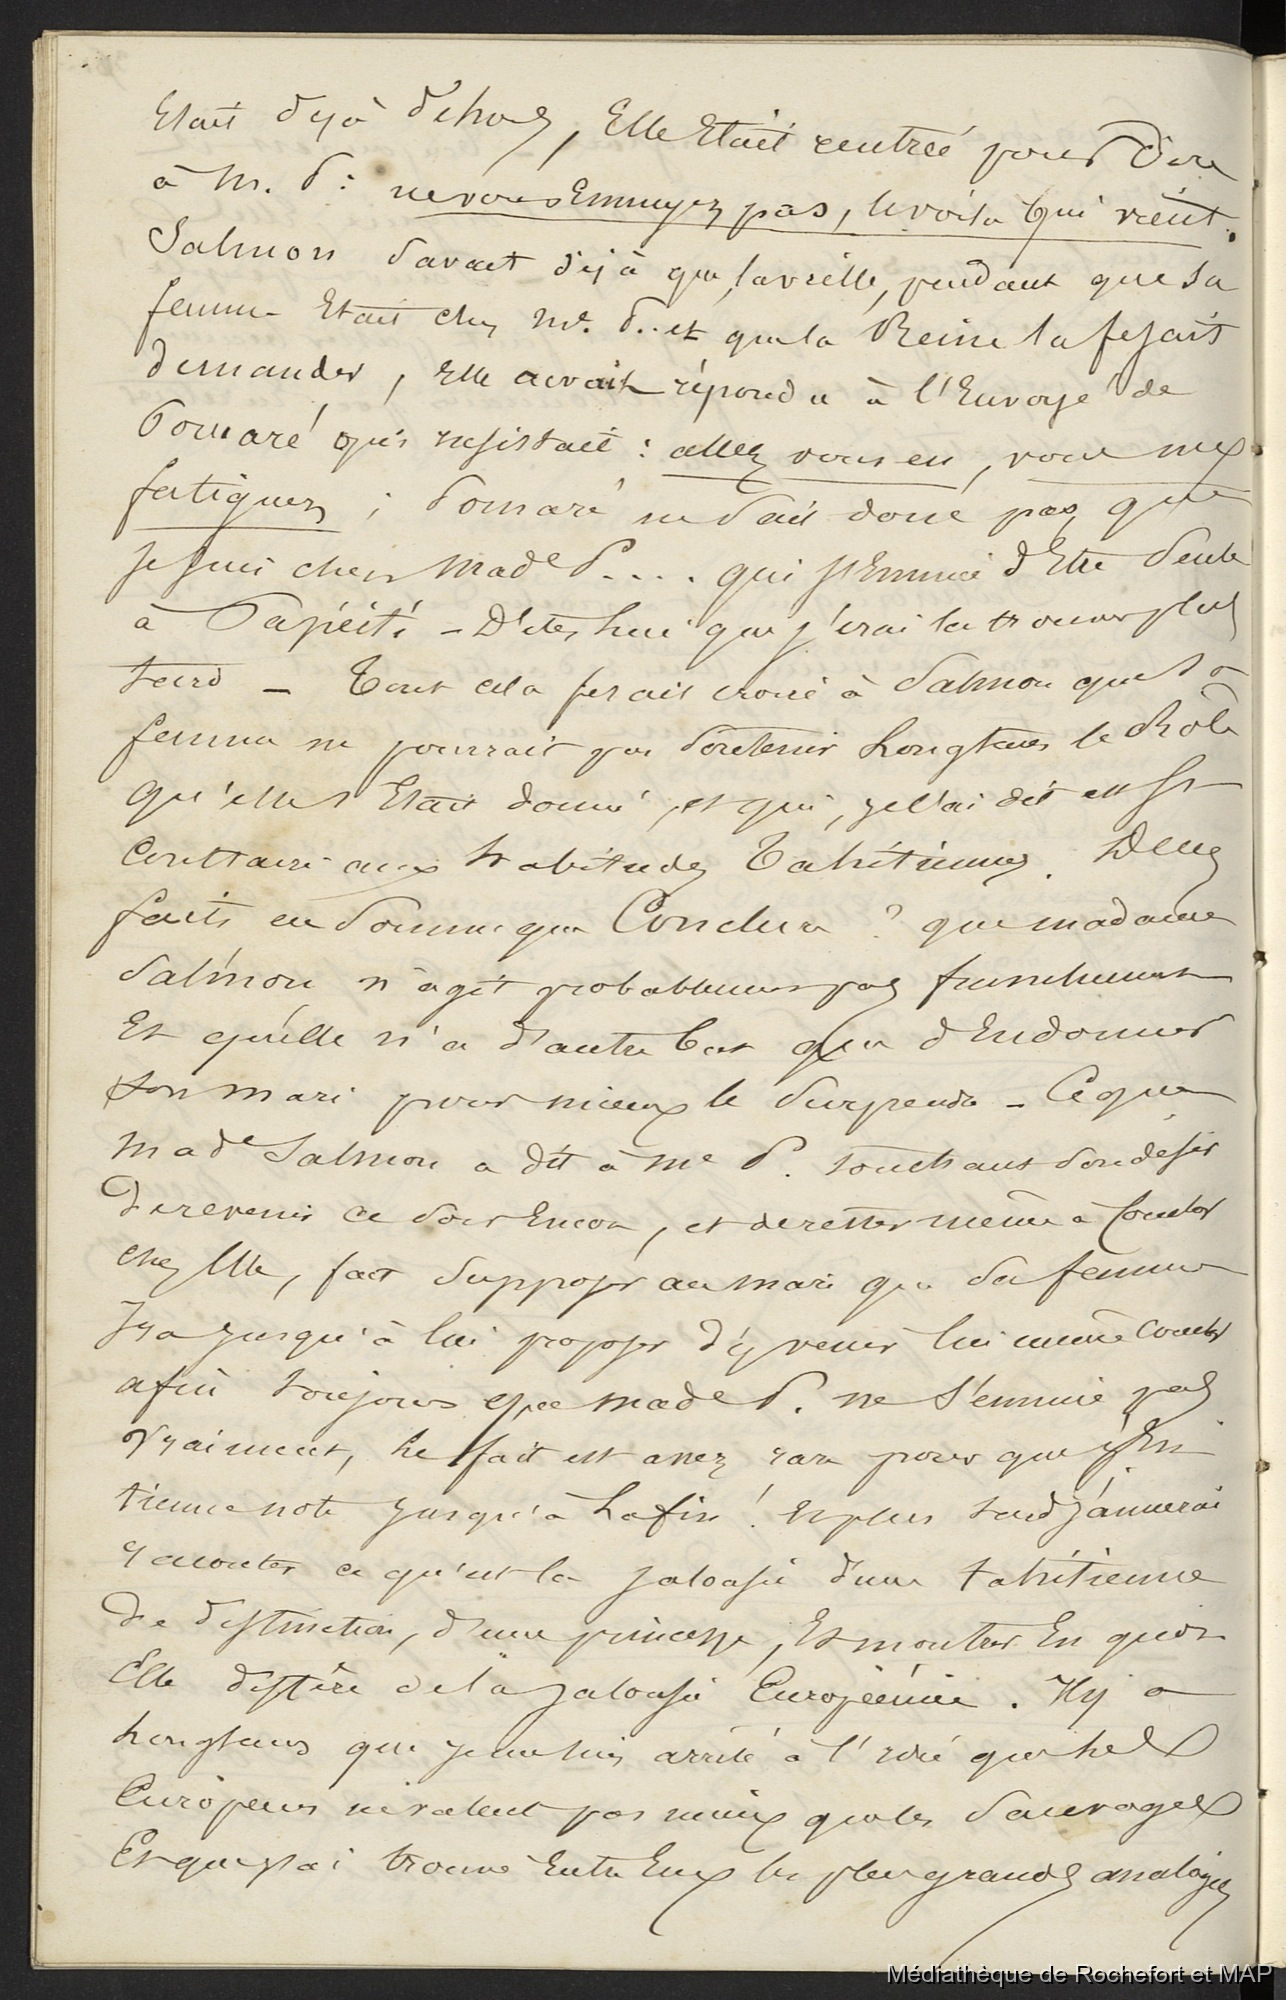 Etait déjà dehors, Elle Etait rentrée pour dire
à M. P : ne vous Ennuyez pas, le voila qui vient.
Salmon savait déjà que, la veille, pendant que sa
femme Etait chez Me. P.. et que la Reine la fesait
demander, Elle avait répondu à l'Envoyé de
Pomaré qui insistait : allez vous en, vous me
fatiguez ; Pomaré ne sait donc pas, que
je suis chez Made P.... qui s'Ennuie d'Etre seule
à Papéïti - Dites lui que j'irai la trouver plus
tard - Tout cela fesait croire à Salmon que sa
femme ne pourrait pas soutenir longtems le Rôle
qu'elle s'Etait donné, et qui, je l'ai dit est si
Contraire aux habitudes Tahitiennes. Deux
faits en somme que Conclure ? que madame
Salmon n'agit probablement pas franchement
Et qu'elle n'a d'autre but que d'Endormir
son mari pour mieux le surprendre - Ce que
made Salmon a dit à Me P. touchant son désir
de revenir ce soir Encore, et de rester même à Coucher
chez Elle, fait supposer au mari que sa femme
Ira jusqu'à lui proposer d'y venir lui même coucher
afin toujours que made P. ne s'ennuie pas
Vraiment, le fait est assez rare pour que j'En
tienne note jusqu'à la fin ! Et plus tard j'aimerai
raconter ce qu'est la jalousie d'une tahitienne
de distinction, d'une princesse, Et montrer En quoi
Elle diffère de la jalousie Européénne. Il y a
longtems que je me suis arrêté à l'idée que les
Européens ne valent pas mieux que les sauvages
Et que j'ai trouvé Entre Eux les plus grandes analogies
Médiathèque de Rochefort et MAP